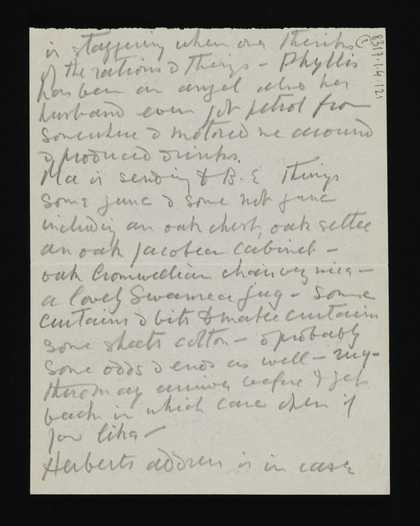 is staggering when one thinks
of the rations & things - Phyllis
has been an angel also her
husband even got petrol from
somewhere & motored me around
& produced drinks.
Ma is sending to B.E things
some junc & some not junc
including an oak chest, oak settee
an oak Jacobean cabinet -
oak Cromwellian chair very nice -
a lovely Swansea jug - Some
curtains & bits to make curtains
some sheets cotton - & probably
some odds & ends as well - rug -
these may arrive before I get
back in which case open if
you like -
Herberts address is in case
8317.1.4.12